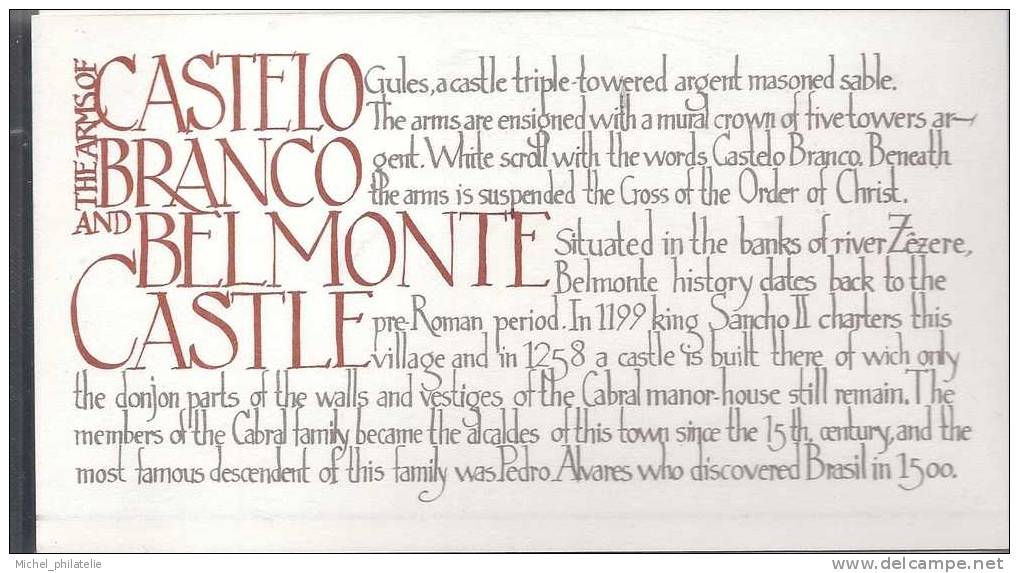 THE ARMS OF
CASTELO
BRANCO
AND BELMONTE
CASTLE
Gules, a castle triple-towered argent masoned sable.
The arms are ensigned with a mural crown of five towers ar-
gent. White scroll with the words Castelo Branco. Beneath
the arms is suspended the Cross of the Order of Christ.
Situated in the banks of river Zêzere,
Belmonte history dates back to the
pre-Roman period. In 1199 king Sancho II charters this
village and in 1258 a castle is built there of wich only
the donjon parts of the walls and vestiges of the Cabral manor-house still remain. The
members of the Cabral family became the alcaldes of this town since the 15th. century, and the
most famous descendent of this family was Pedro Alvares who discovered Brasil in 1500.
Michel_philatelie
delcampe.net